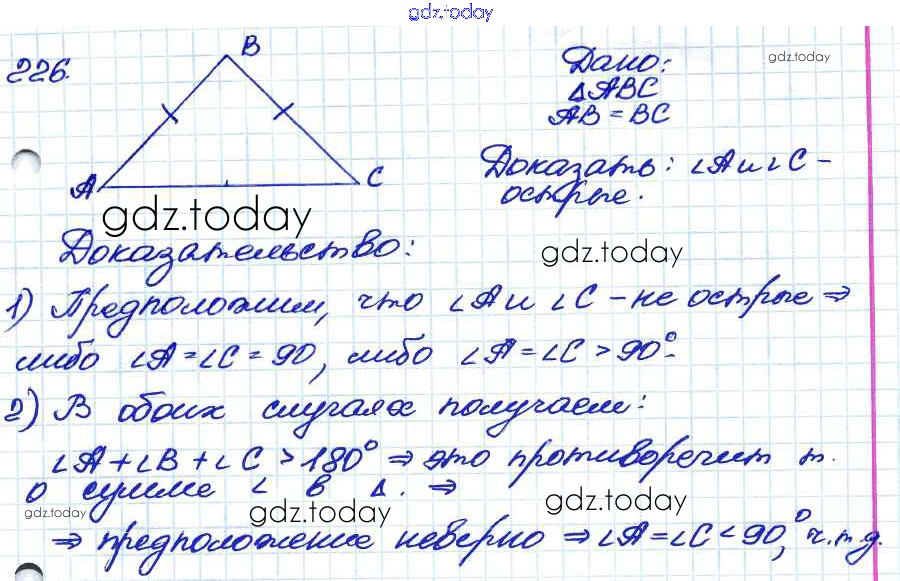 gdz.today
226.
B
A
C
Дано:
ΔABC
AB = BC
gdz.today
Доказать: ∠A и ∠C –
острые.
gdz.today
Доказательство:
gdz.today
1) Предположим, что ∠A и ∠C – не острые ⇒
либо ∠A = ∠C = 90, либо ∠A = ∠C > 90°.
2) В обоих случаях получаем:
∠A + ∠B + ∠C > 180° ⇒ это противоречит т.
о сумме ∠ в Δ. ⇒
gdz.today
gdz.today
gdz.today
⇒ предположение неверно ⇒ ∠A = ∠C < 90°, ч.т.д.